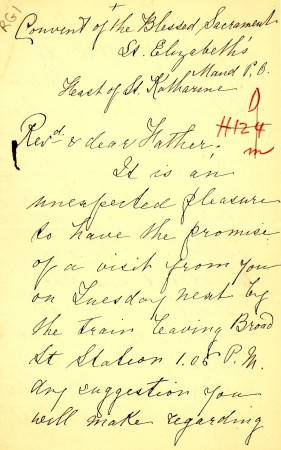 RG1
Convent of the Blessed Sacrament
St. Elizabeth's
Maud P.O.
Feast of St. Katharine
D
H124
m
Revd. & dear Father:
It is an
unexpected pleasure
to have the promise
of a visit from you
on Tuesday next by
the train leaving Broad
St Station 1.05 P.M.
Any suggestion you
will make regarding